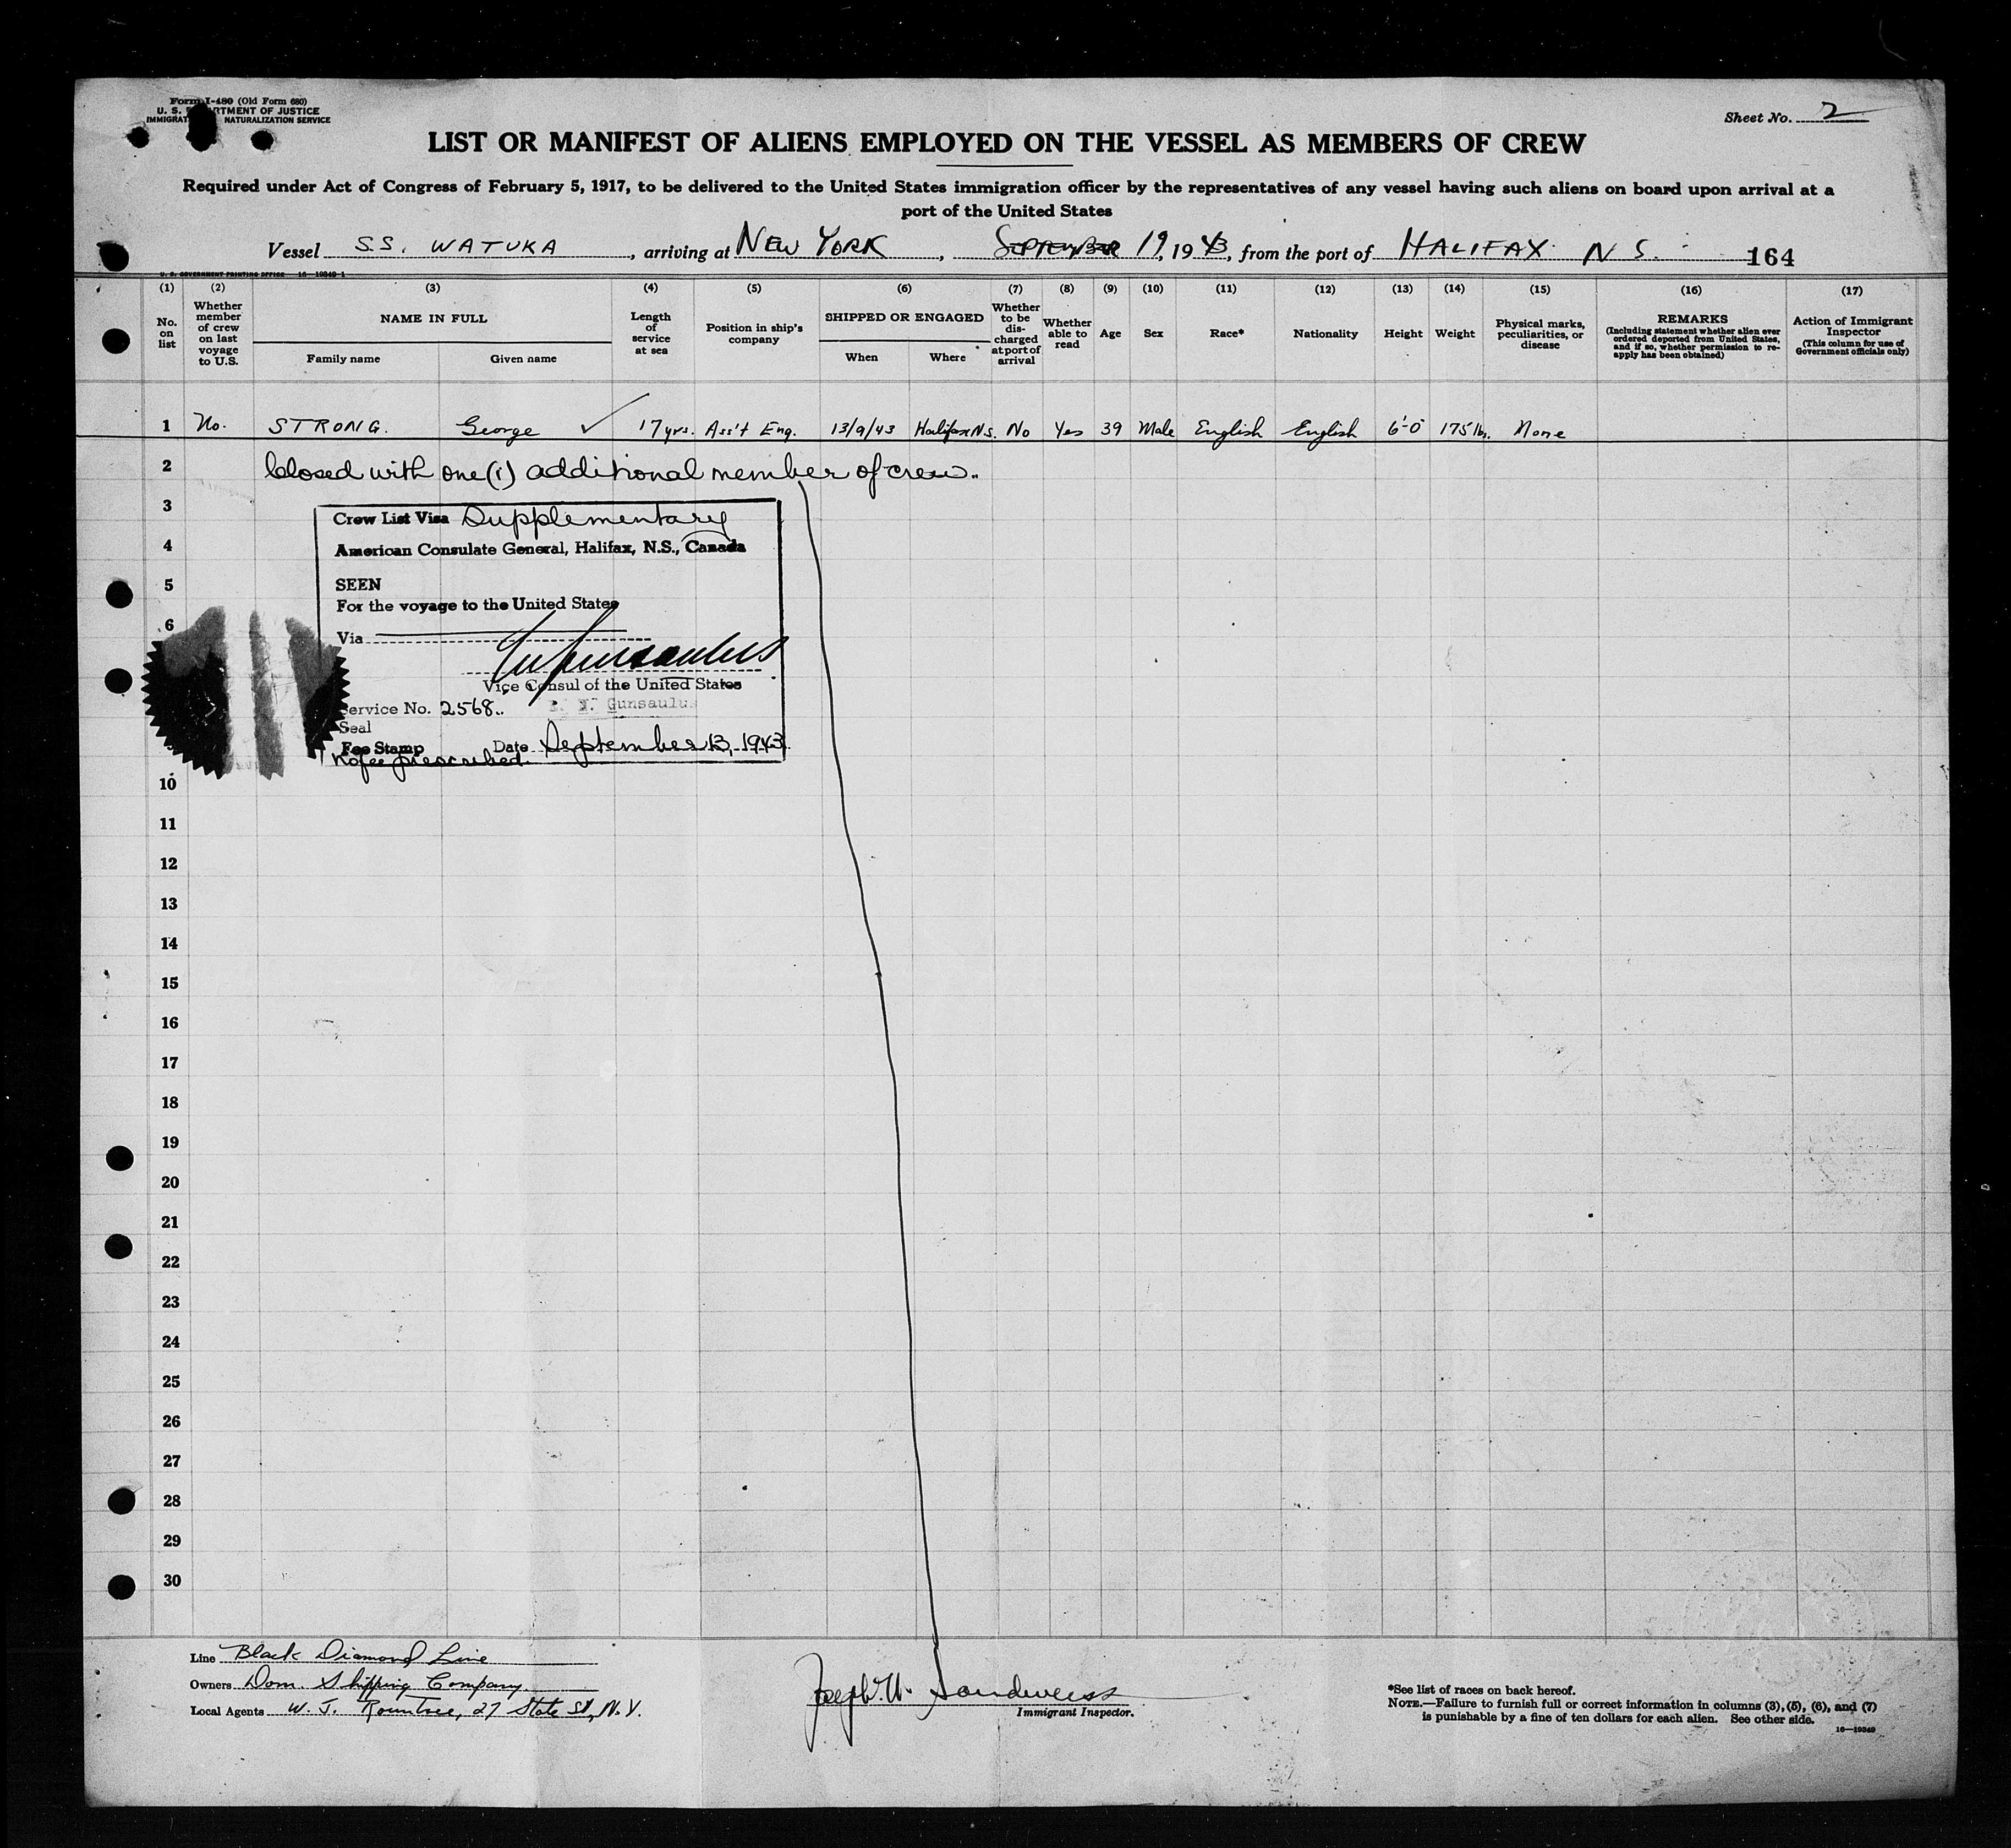 Form I-480 (Old Form 680)
U. S. DEPARTMENT OF JUSTICE
IMMIGRAT NATURALIZATION SERVICE
Sheet No. 2
LIST OR MANIFEST OF ALIENS EMPLOYED ON THE VESSEL AS MEMBERS OF CREW
Required under Act of Congress of February 5, 1917, to be delivered to the United States immigration officer by the representatives of any vessel having such aliens on board upon arrival at a
port of the United States
Vessel S.S. WATUKA, arriving at NEW YORK, SEPTEMBER 19, 1943, from the port of HALIFAX N S. 164
U. S. GOVERNMENT PRINTING OFFICE 16-19349-1
(1) (2) (3) (4) (5) (6) (7) (8) (9) (10) (11) (12) (13) (14) (15) (16) (17)
No. on list
Whether member of crew on last voyage to U.S.
NAME IN FULL
Family name Given name
Length of service at sea
Position in ship's company
SHIPPED OR ENGAGED
When Where
Whether to be discharged at port of arrival
Whether able to read
Age
Sex
Race*
Nationality
Height
Weight
Physical marks, peculiarities, or disease
REMARKS
(Including statement whether alien ever ordered deported from United States, and if so, whether permission to reapply has been obtained)
Action of Immigrant Inspector
(This column for use of Government officials only)
1 No. STRONG. George ✓ 17 yrs. Ass't Eng. 13/9/43 Halifax N.S. No Yes 39 Male English English 6'-0" 175 lbs. None
2 Closed with one (1) additional member of crew..
3
Crew List Visa Supplementary
4
American Consulate General, Halifax, N.S., Canada
5
SEEN
For the voyage to the United States
6
Via
Vice Consul of the United States
Service No. 2568.. Gunsaulus
Seal
Fee Stamp Date September 13, 1943.
No fee prescribed.
10
11
12
13
14
15
16
17
18
19
20
21
22
23
24
25
26
27
28
29
30
Line Black Diamond Line
Owners Dom. Shipping Company
Local Agents W. J. Rountree, 27 State St, N.Y.
Joseph W. Sandweiss
Immigrant Inspector.
*See list of races on back hereof.
NOTE.—Failure to furnish full or correct information in columns (3), (5), (6), and (7)
is punishable by a fine of ten dollars for each alien. See other side.
16—19349